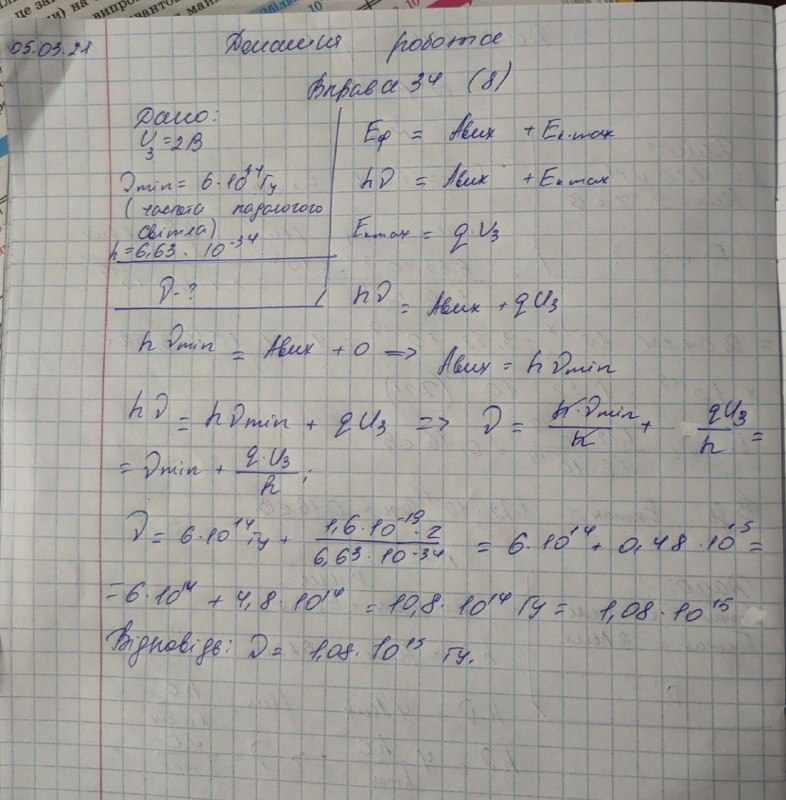 це за
и) на
випром
вантов
05.03.21
Домашня робота
Вправа 34 (8)
Дано:
U₃ = 2В
νmin = 6·10¹⁴ Гц
(частота падаючого
світла)
h = 6,63 · 10⁻³⁴
ν - ?
Eф = Aвих + Eк.max
hν = Aвих + Eк max
Eкmax = qU₃
hν = Aвих + qU₃
hνmin = Aвих + 0 => Aвих = hνmin
hν = hνmin + qU₃ => ν = h·νmin/h + qU₃/h =
= νmin + q·U₃/h ;
ν = 6·10¹⁴ Гц + 1,6·10⁻¹⁹·2/6,63·10⁻³⁴ = 6·10¹⁴ + 0,48·10¹⁵ =
= 6·10¹⁴ + 4,8·10¹⁴ = 10,8·10¹⁴ Гц = 1,08·10¹⁵
Відповідь: ν = 1,08·10¹⁵ Гц.